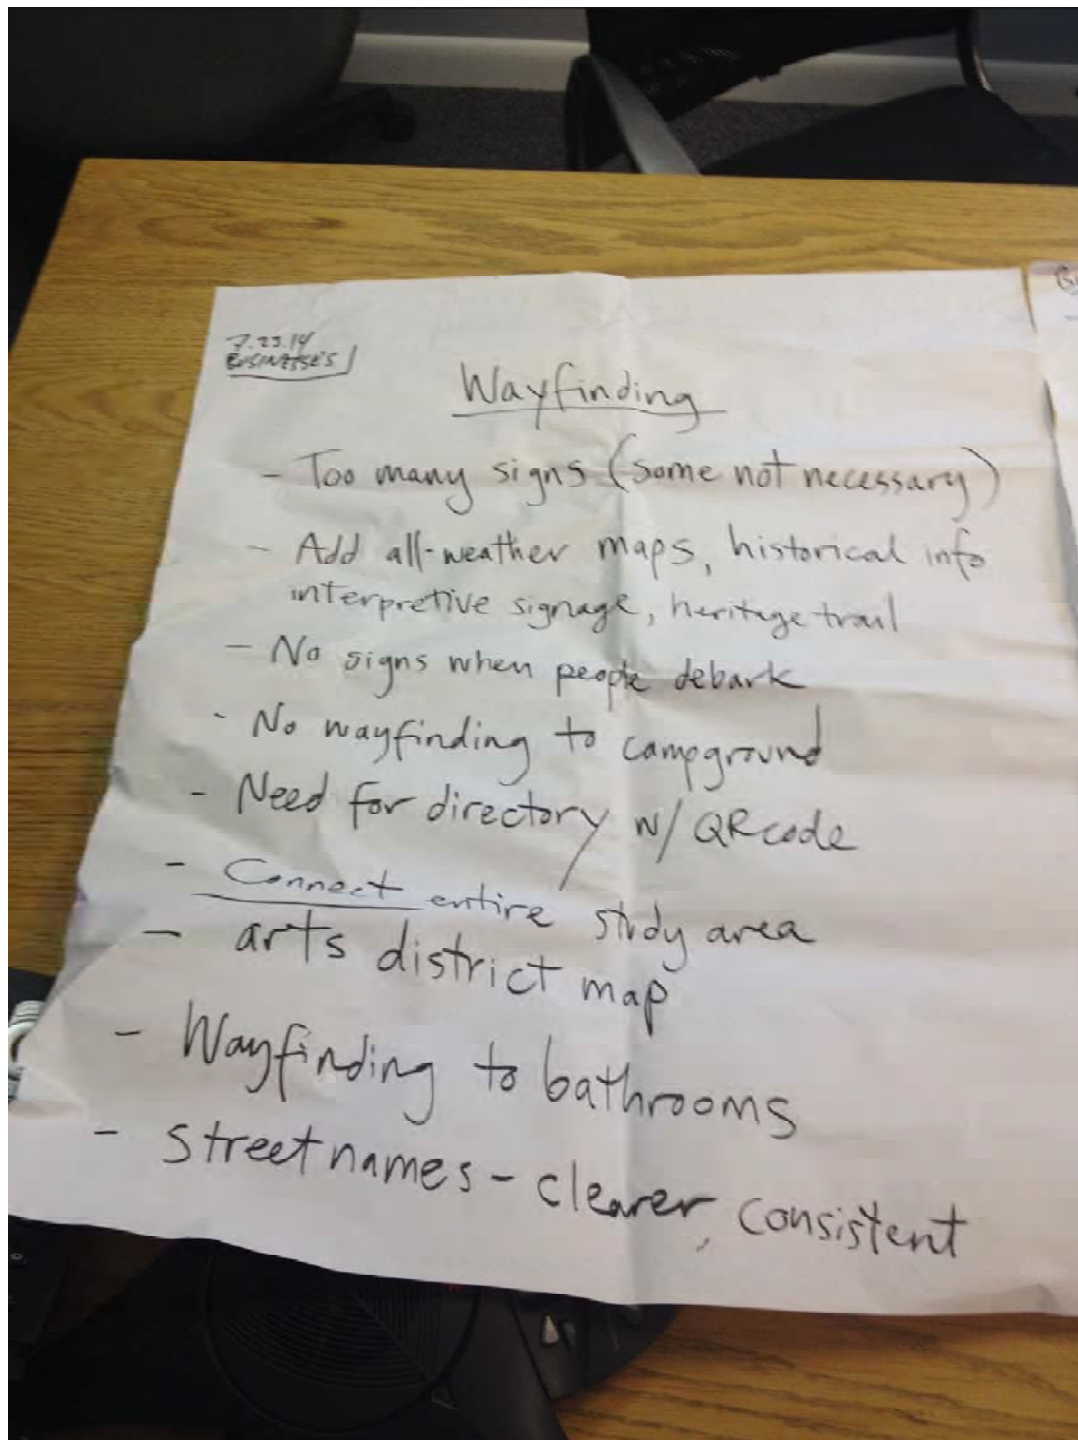 7.23.14
BUSINESSES
Wayfinding
- Too many signs (some not necessary)
- Add all-weather maps, historical info
interpretive signage, heritage trail
- No signs when people debark
- No wayfinding to campground
- Need for directory w/ QR code
- Connect entire study area
- arts district map
- Wayfinding to bathrooms
- street names - clearer, consistent